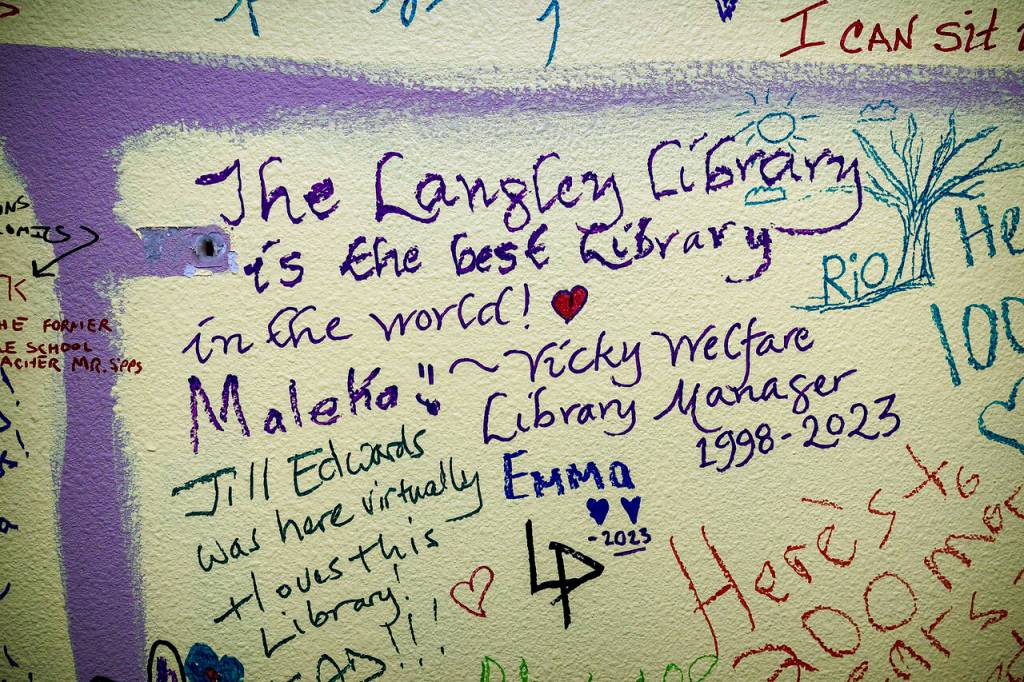 I CAN Sit
The Langley Library
is the best Library
in the world!
~ Vicky Welfare
Library Manager
1998-2023
Maleko!!
Rio
He
100
HE FORMER
E SCHOOL
ACHER MR. SIPPS
Jill Edwards
was here virtually
+ loves this
Library!
EMMA
-2023
LP
Here's to
200 mor
ears